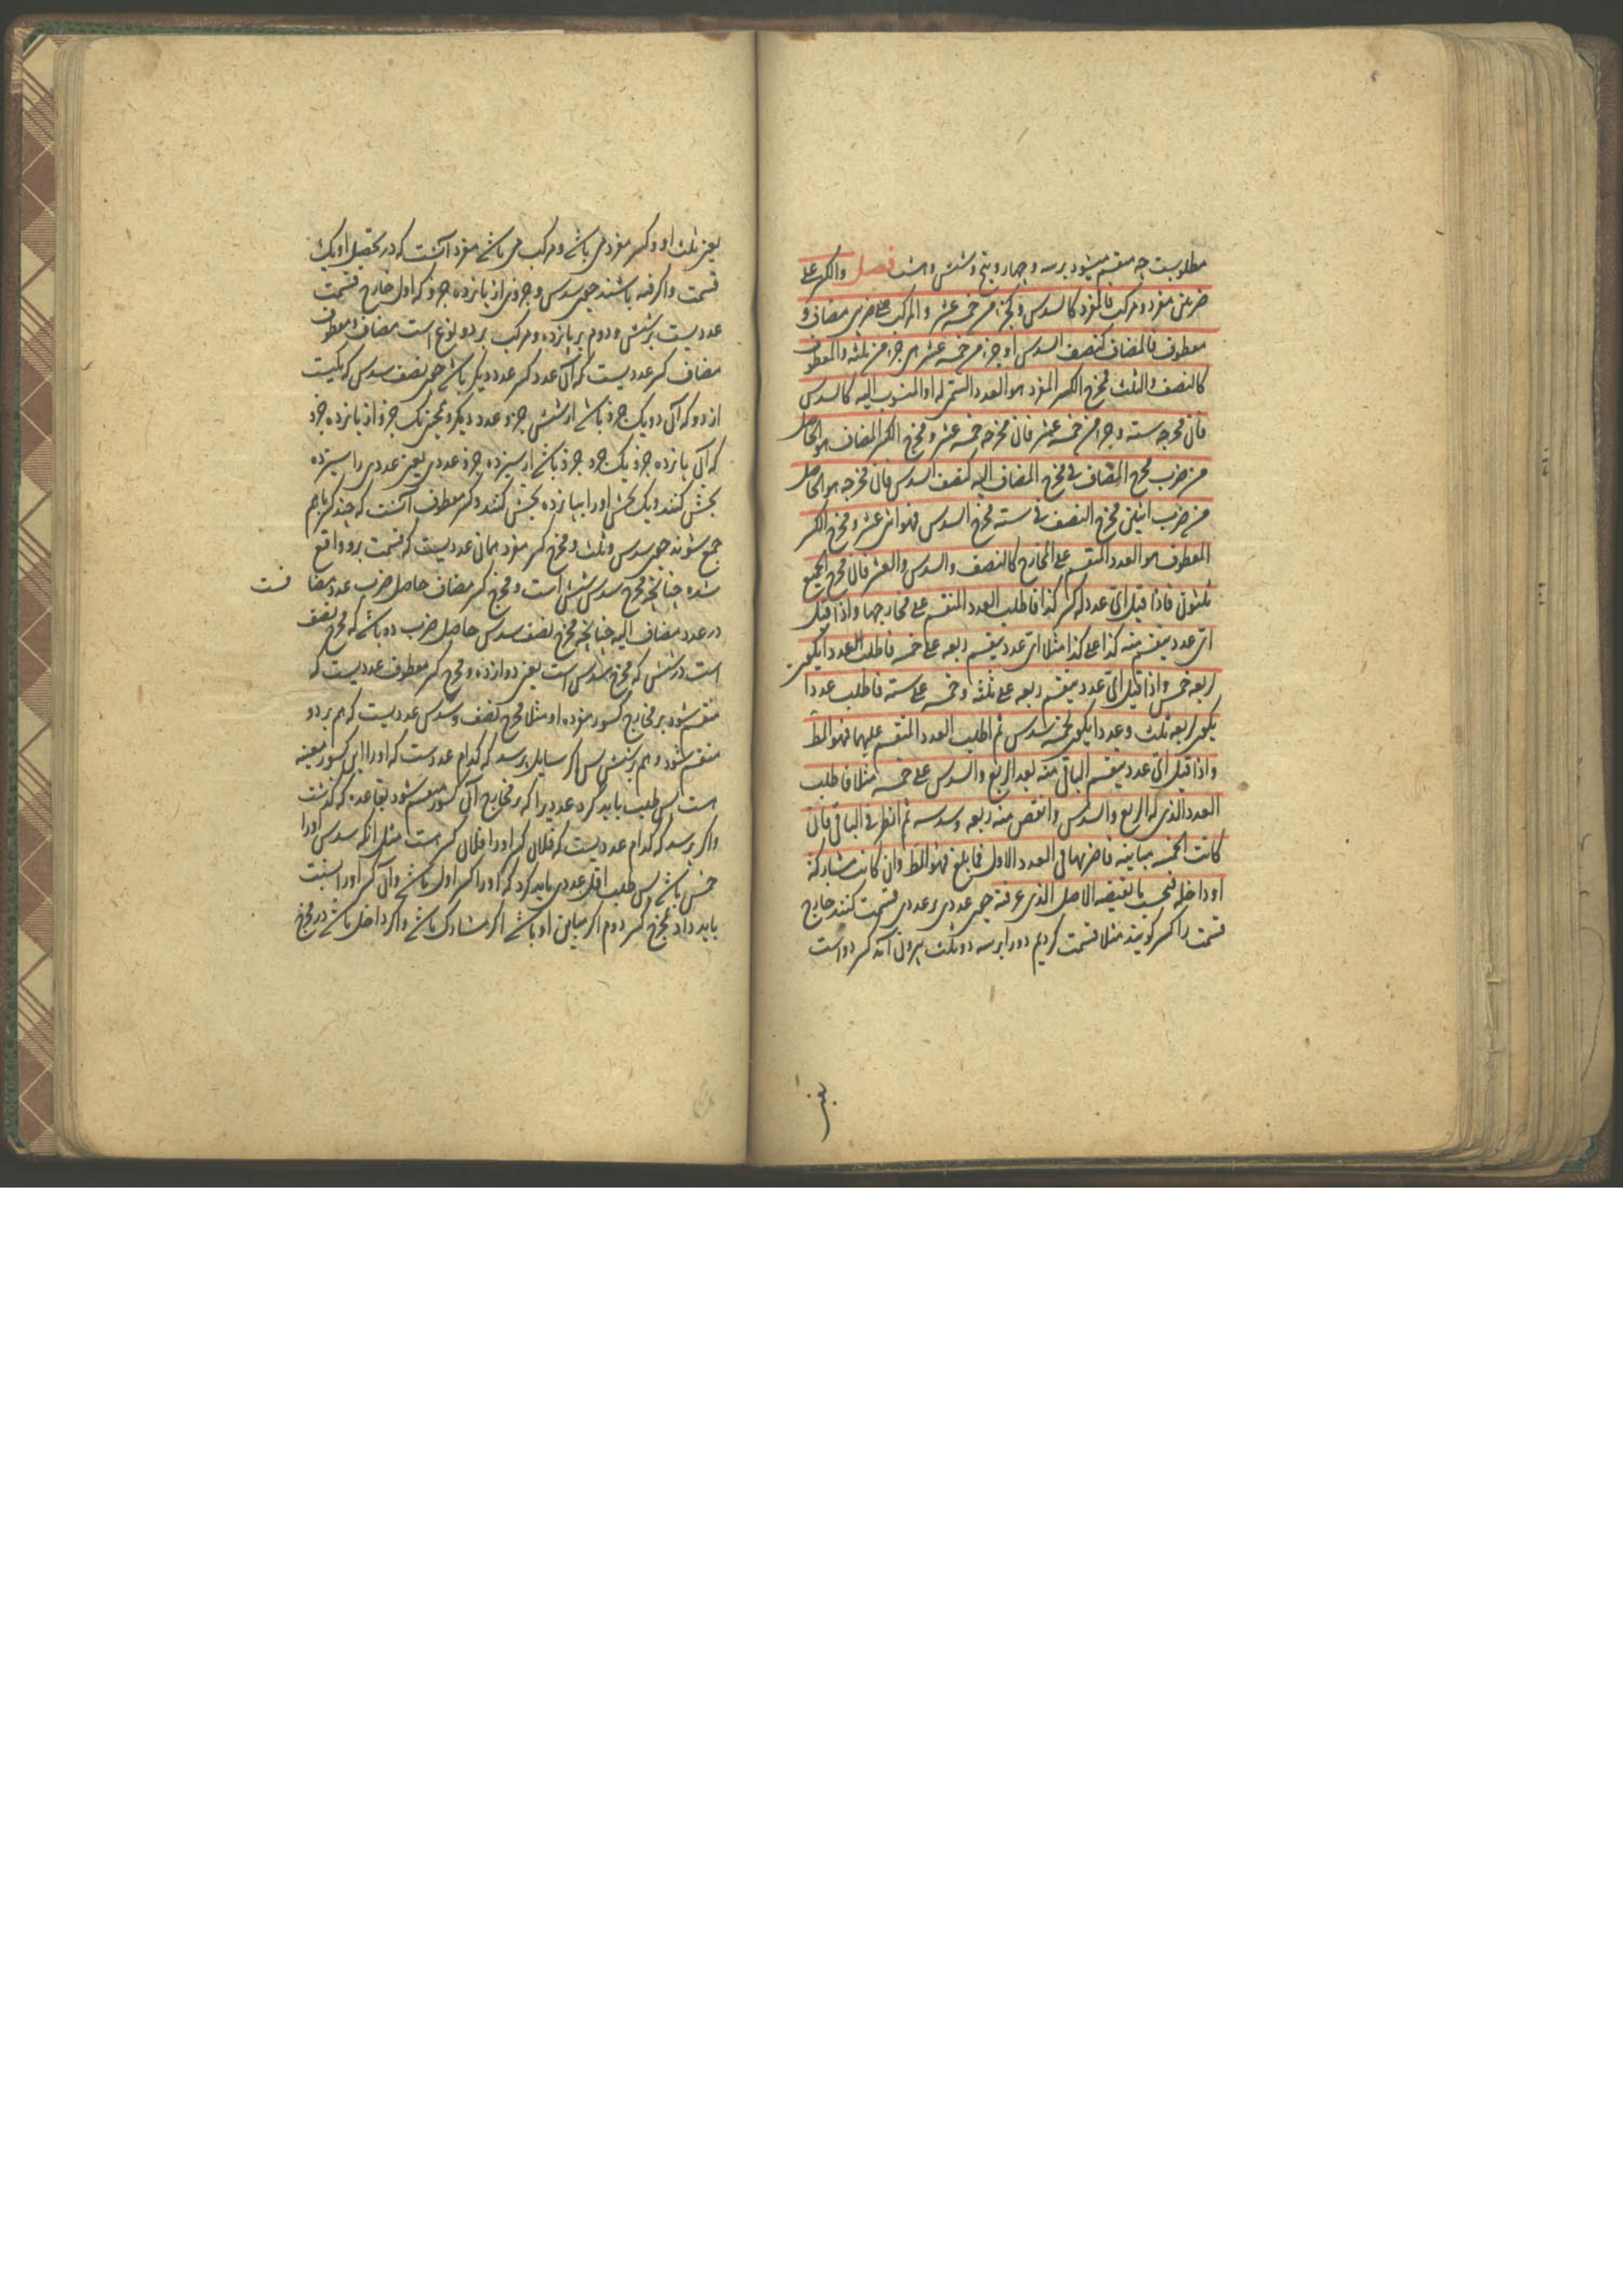 مطلوبست چه منقسم میشود برسه و چهار و پنج و شش و هشت فصل والکسر علی
ضربین مفرد و مرکب فالمفرد کالسدس و کجزء من خمسة عشر والمرکب علی ضربین مضاف و
معطوف فالمضاف کنصف السدس او جزء من خمسة عشر من جزء من ثلثة والمعطوف
کالنصف والثلث فمخرج الکسر المفرد هو العدد المستمر له او المنسوب الیه کالسدس
فان مخرجه ستة وجزء من خمسة عشر فان مخرجه خمسة عشر ومخرج الکسر المضاف هو الحاصل
من ضرب مخرج المضاف فی مخرج المضاف الیه کنصف السدس فان مخرجه هو الحاصل
من ضرب اثنین مخرج النصف فی ستة مخرج السدس فهو اثنی عشر ومخرج الکسر
المعطوف هو العدد المنقسم علی المخارج کالنصف والسدس والعشر فان مخرج الجمیع
ثلثون فاذا قیل ای عدد له کسر کذا فاطلب العدد المنقسم علی مخارجها واذا قیل
ای عدد ینقسم منه کذا علی کذا مثلا ای عدد ینقسم ربعه علی خمسة فاطلب العددا یکون
لربعه خمس واذا قیل ای عدد ینقسم ربعه علی ثلثة وخمسه علی ستة فاطلب عددا
یکون لربعه ثلث وعددا یکون لخمسه سدس ثم اطلب العدد المنقسم علیهما فهو المط
واذا قیل ای عدد ینقسم الباقی منه بعد الربع والسدس علی خمسة مثلا فاطلب
العدد الذی له الربع والسدس وانقص منه ربعه وسدسه ثم انظر فی الباقی فان
کانت الخمسة مباینة فاضربها فی العدد الاول فما بلغ فهو المط وان کانت مشارکة
او داخلة فبحسب ما یقتضیه الاصل الذی عرفته چون عددی بر عددی قسمت کنند خارج
قسمت را کسر کویند مثلا قسمت کردیم دو را برسه دو ثلث بیرون آمد کسر دو است
یعنی
یعنی ثلث او و کسر مفرد می باشد و مرکب می باشد مفرد آنست که در تحصیل او یک
قسمت واکرفته باشند چون سدس و جزوی از پانزده جزو که اول خارج قسمت
عددیست برشش و دوم بر پانزده و مرکب بر دو نوع است مضاف و معطوف
مضاف کسر عددیست که آن عدد کسر عدد دیگر باشد چون نصف سدس که یکیست
از دو که آن دو یک جزو باشد از شش جزو عدد دیکر و همچنین یک جزو از پانزده جزو
که آن پانزده جزو یک جزو باشد از سیزده جزو عددی یعنی عددی را سیزده
بخش کنند و یک بخش او را بپانزده بخش کنند و کسر معطوف آنست که چند کسر باهم
جمع شوند چون سدس و ثلث و مخرج کسر مفرد همان عددیست که قسمت برو واقع
شده چنانچه مخرج سدس شش است و مخرج کسر مضاف حاصل ضرب عدد مضا فست
در عدد مضاف الیه چنانچه مخرج نصف سدس حاصل ضرب دو باشد که مخرج نصف
است در شش که مخرج سدس است یعنی دوازده و مخرج کسر معطوف عددیست که
منقسم شود بر مخارج کسور مفرده او مثلا مخرج نصف و سدس عددیست که هم بر دو
منقسم شود و هم بر شش پس اکر سایل پرسد که کدام عددست که او را این کسور معینه
است پس طلب باید کرد عددیرا که بر مخارج آن کسور منقسم شود بقاعده که کذشت
واکر پرسد که کدام عددیست که فلان کسر او را فلان کسر است مثل انکه سدس او را
خمس باشد پس طلب اقل عددی باید کرد که او را کسر اول باشد و آن کسر او را نسبت
باید داد بمخرج کسر دوم اکر مباین او باشد اکر مشارک باشد واکر داخل باشد در مخرج